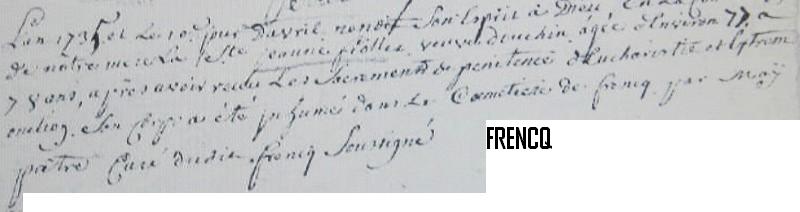 L'an 1735 et le 10e jour d'avril rendit son Esprit à Dieu en la Co
de notre mere La Ste jeanne veuve d'uchin, agée d'Environ 77 a
78 ans, apres avoir receu Les Sacrements de penitence d'Eucharistie et Extrem
onction. Son Corps a été inhumé dans Le Cœmetiere de frencq par Moÿ
pntre Curé dudit frencq Soussigné
FRENCQ